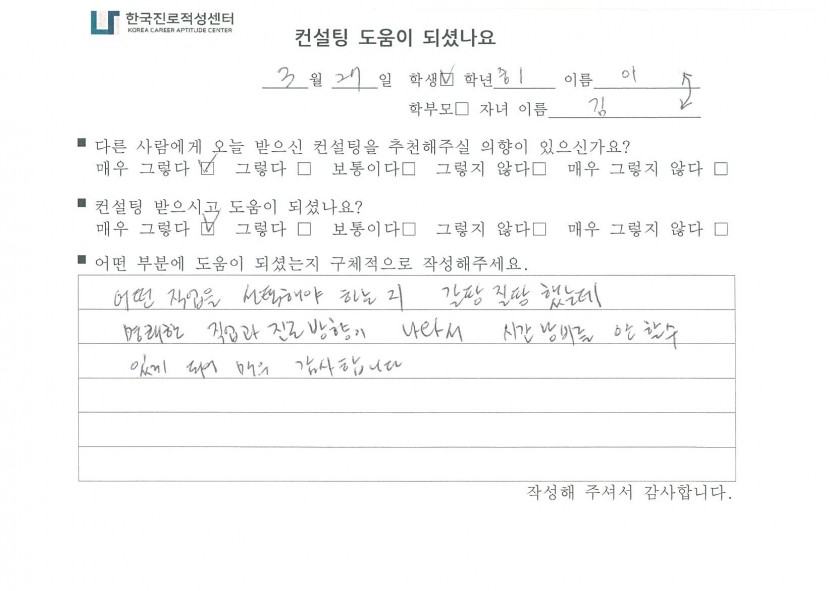 한국진로적성센터
KOREA CAREER APTITUDE CENTER
컨설팅 도움이 되셨나요
3월 27일 학생☑ 학년 중1 이름 이
학부모□ 자녀 이름 김
■ 다른 사람에게 오늘 받으신 컨설팅을 추천해주실 의향이 있으신가요?
매우 그렇다 ☑ 그렇다 □ 보통이다□ 그렇지 않다□ 매우 그렇지 않다 □
■ 컨설팅 받으시고 도움이 되셨나요?
매우 그렇다 ☑ 그렇다 □ 보통이다□ 그렇지 않다□ 매우 그렇지 않다 □
■ 어떤 부분에 도움이 되셨는지 구체적으로 작성해주세요.
어떤 직업을 선택해야 하는지 갈팡질팡 했는데
명쾌한 직업과 진로방향이 나와서 시간낭비를 안 할수
있게 되어 매우 감사합니다
작성해 주셔서 감사합니다.